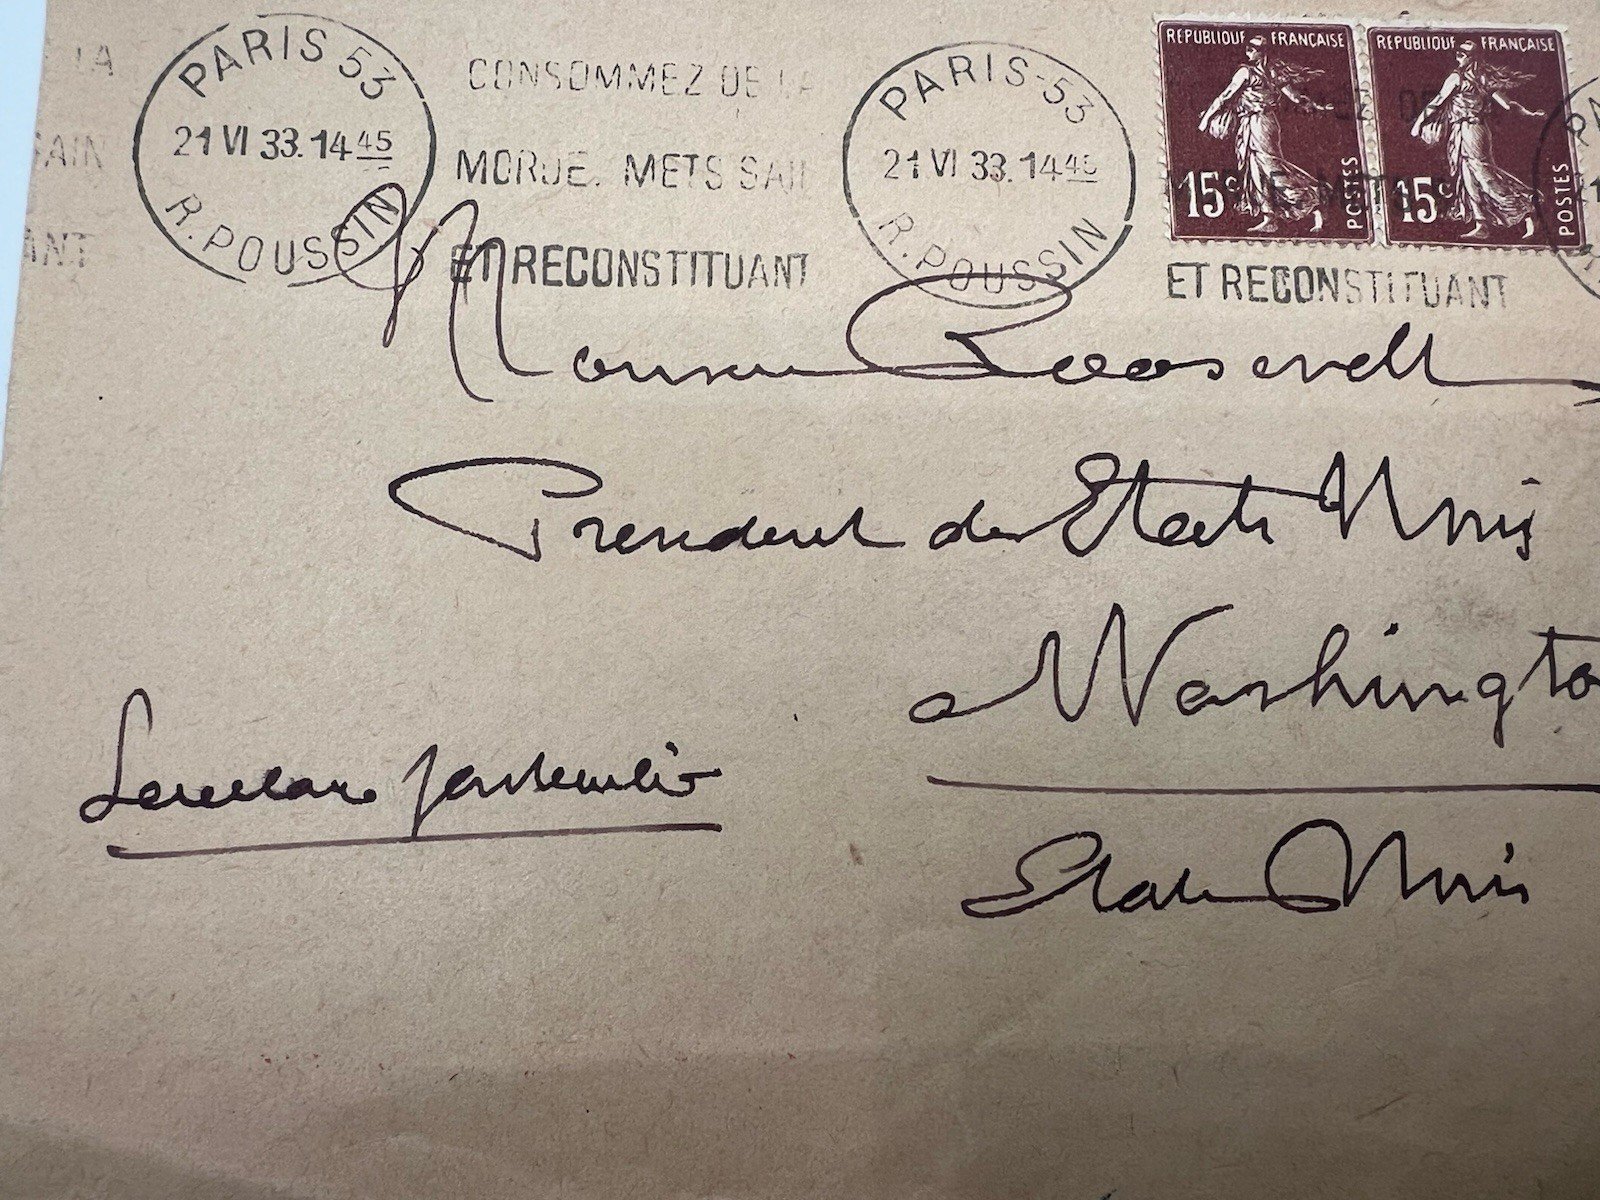 LA
PARIS 53
21 VI 33. 14 45
R. POUSSIN
CONSOMMEZ DE LA
MORUE. METS SAIN
ET RECONSTITUANT
PARIS-53
21 VI 33. 14 45
R. POUSSIN
REPUBLIQUE FRANÇAISE
15c
POSTES
REPUBLIQUE FRANÇAISE
15c
POSTES
ET RECONSTITUANT
SAIN
ANT
Monsieur Roosevelt
President des Etats Unis
a Washingto
Etats Unis